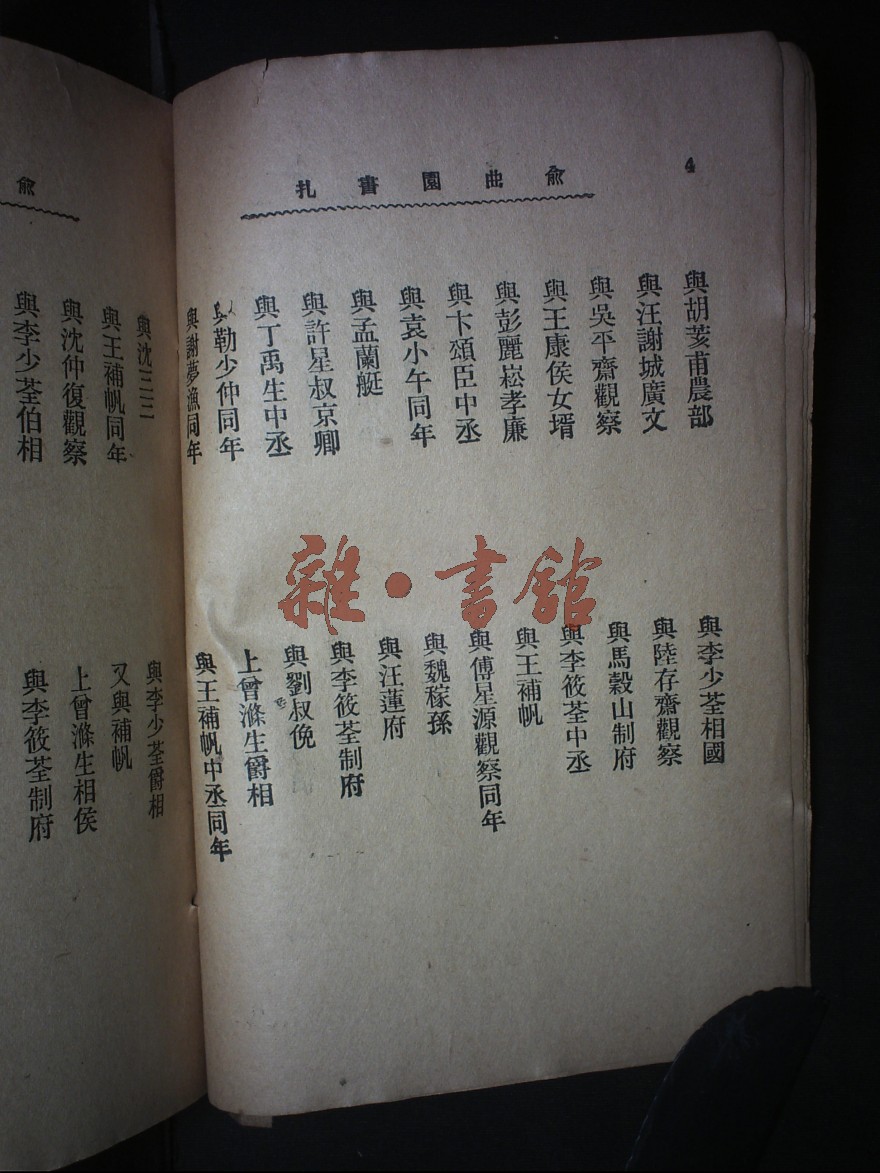 4
俞曲園書扎
與胡荄甫農部
與汪謝城廣文
與吳平齋觀察
與王康侯女壻
與彭麗崧孝廉
與卞頌臣中丞
與袁小午同年
與孟蘭艇
與許星叔京卿
與丁禹生中丞
與勒少仲同年
與謝夢漁同年
與李少荃相國
與陸存齋觀察
與馬穀山制府
與李筱荃中丞
與王補帆
與傅星源觀察同年
與魏稼孫
與汪蓮府
與李筱荃制府
與劉叔俛
上曾滌生爵相
與王補帆中丞同年
雜·書館
俞
與沈
與王補帆同年
與沈仲復觀察
與李少荃伯相
與李少荃爵相
又與補帆
上曾滌生相侯
與李筱荃制府